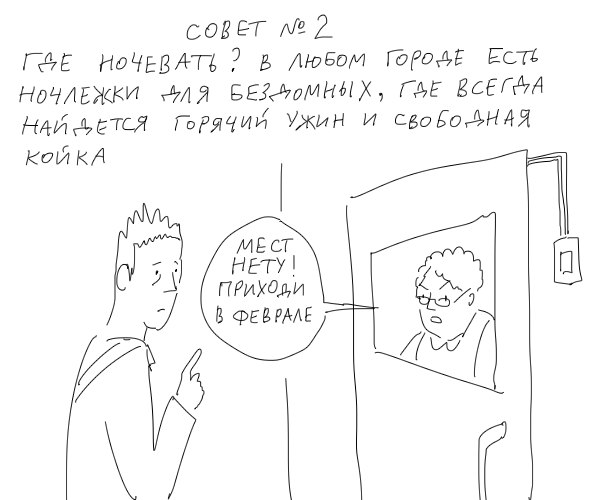 СОВЕТ № 2
ГДЕ НОЧЕВАТЬ? В ЛЮБОМ ГОРОДЕ ЕСТЬ
НОЧЛЕЖКИ ДЛЯ БЕЗДОМНЫХ, ГДЕ ВСЕГДА
НАЙДЕТСЯ ГОРЯЧИЙ УЖИН И СВОБОДНАЯ
КОЙКА
МЕСТ
НЕТУ!
ПРИХОДИ
В ФЕВРАЛЕ